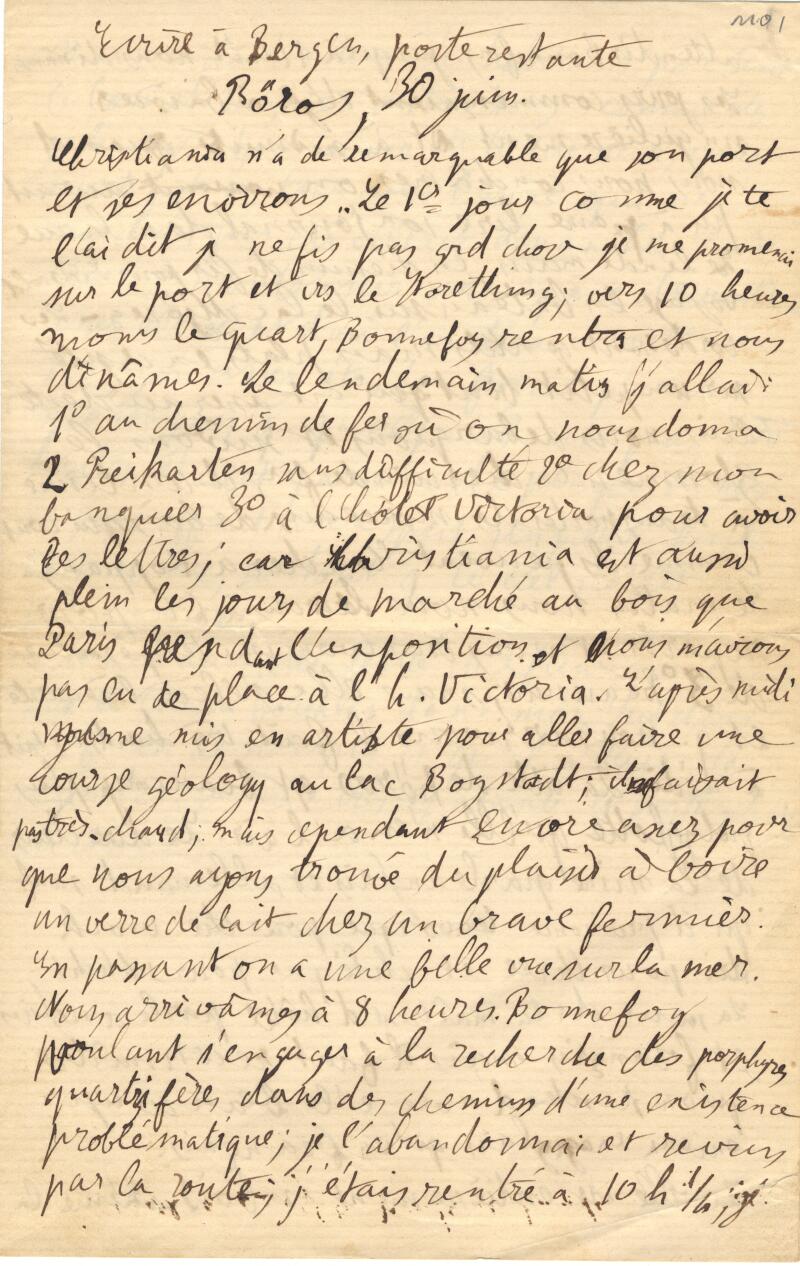 Ecrire à Bergen, poste restante
Röros, 30 juin.
Christiania n'a de remarquable que son port
et ses environs.. Le 1er jour comme je te
l'ai dit je ne fis pas grd chose je me promenai
sur le port et vrs le Storething; vers 10 heures
moins le quart, Bonnefoy rentra et nous
dînâmes. Le lendemain matin j'allai
1º au chemin de fer où on nous donna
2 Freikarten sans difficulté 2º chez mon
banquier 3º à l'hôtel Victoria pour avoir
tes lettres; car Christiania est aussi
plein les jours de marché au bois que
Paris pendant l'exposition et nous n'avions
pas eu de place à l'h. Victoria. L'après midi
mis en artiste pour aller faire une
course géology au lac Bogstadt; il faisait
pas très chaud; mais cependant encore assez pour
que nous ayons trouvé du plaisir à boire
un verre de lait chez un brave fermier.
En passant on a une belle vue sur la mer.
Nous arrivâmes à 8 heures. Bonnefoy
voulant s'engager à la recherche des porphyres
quartzifères dans des chemins d'une existence
problématique; je l'abandonnai et revins
par la route; j'étais rentré à 10 h 1/4; je